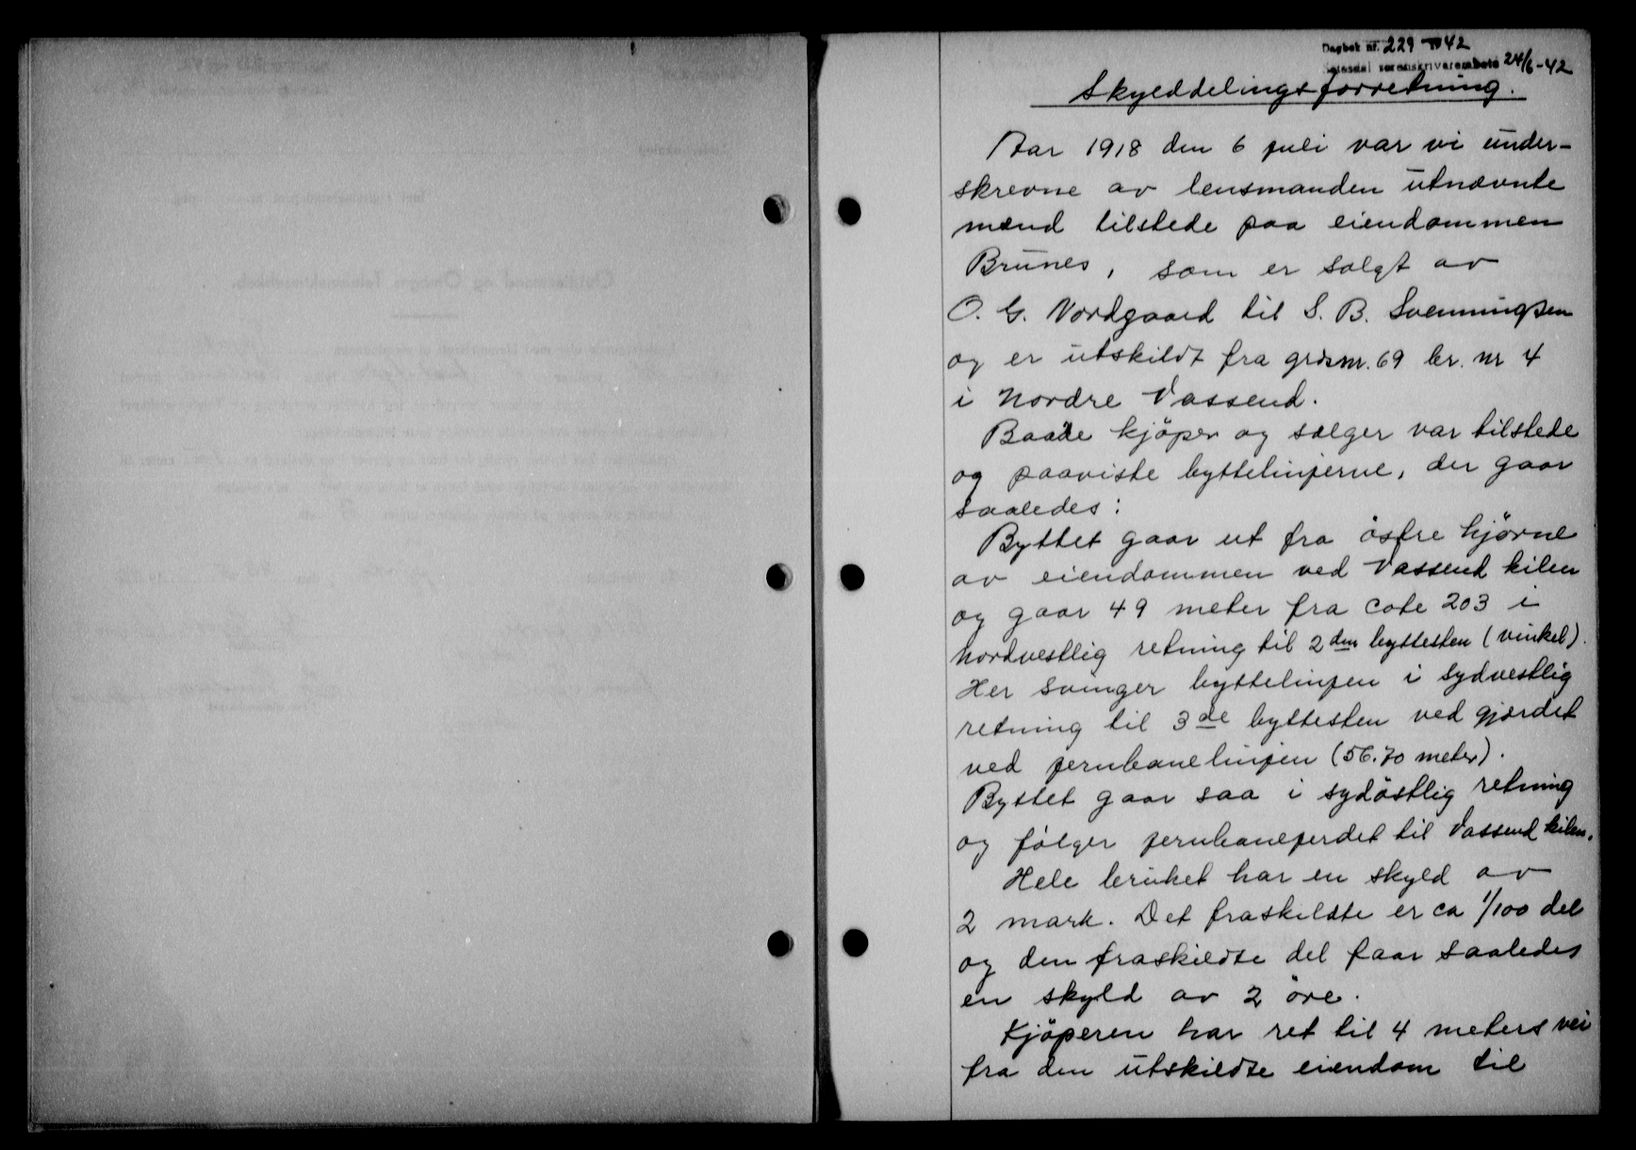 Dagbok nr. 229 - 1942
Setesdal sorenskrivarembete 24/6-42
Skylddelingsforretning.
Aar 1918 den 6 juli var vi under-
skrevne av lensmanden utnævnte
mænd tilstede paa eiendommen
Brunes, som er solgt av
O. G. Nordgaard til S. B. Svenningsen
og er utskildt fra grdsnr. 69 br. nr 4
i Nordre Vassend.
Baade kjøper og sælger var tilstede
og paaviste byttelinjerne, der gaar
saaledes:
Byttet gaar ut fra østre hjørne
av eiendommen ved Vassend kilen
og gaar 49 meter fra cote 203 i
nordvestlig retning til 2den byttesten (vinkel).
Her svinger byttelinjen i sydvestlig
retning til 3de byttesten ved gjærdet
ved jernbanelinjen (56.70 meter).
Byttet gaar saa i sydøstlig retning
og følger jernbanejerdet til Vassend kilen.
Hele bruket har en skyld av
2 mark. Det fraskildte er ca 1/100 del
og den fraskildte del faar saaledes
en skyld av 2 øre.
Kjøperen har ret til 4 meters vei
fra den utskildte eiendom til